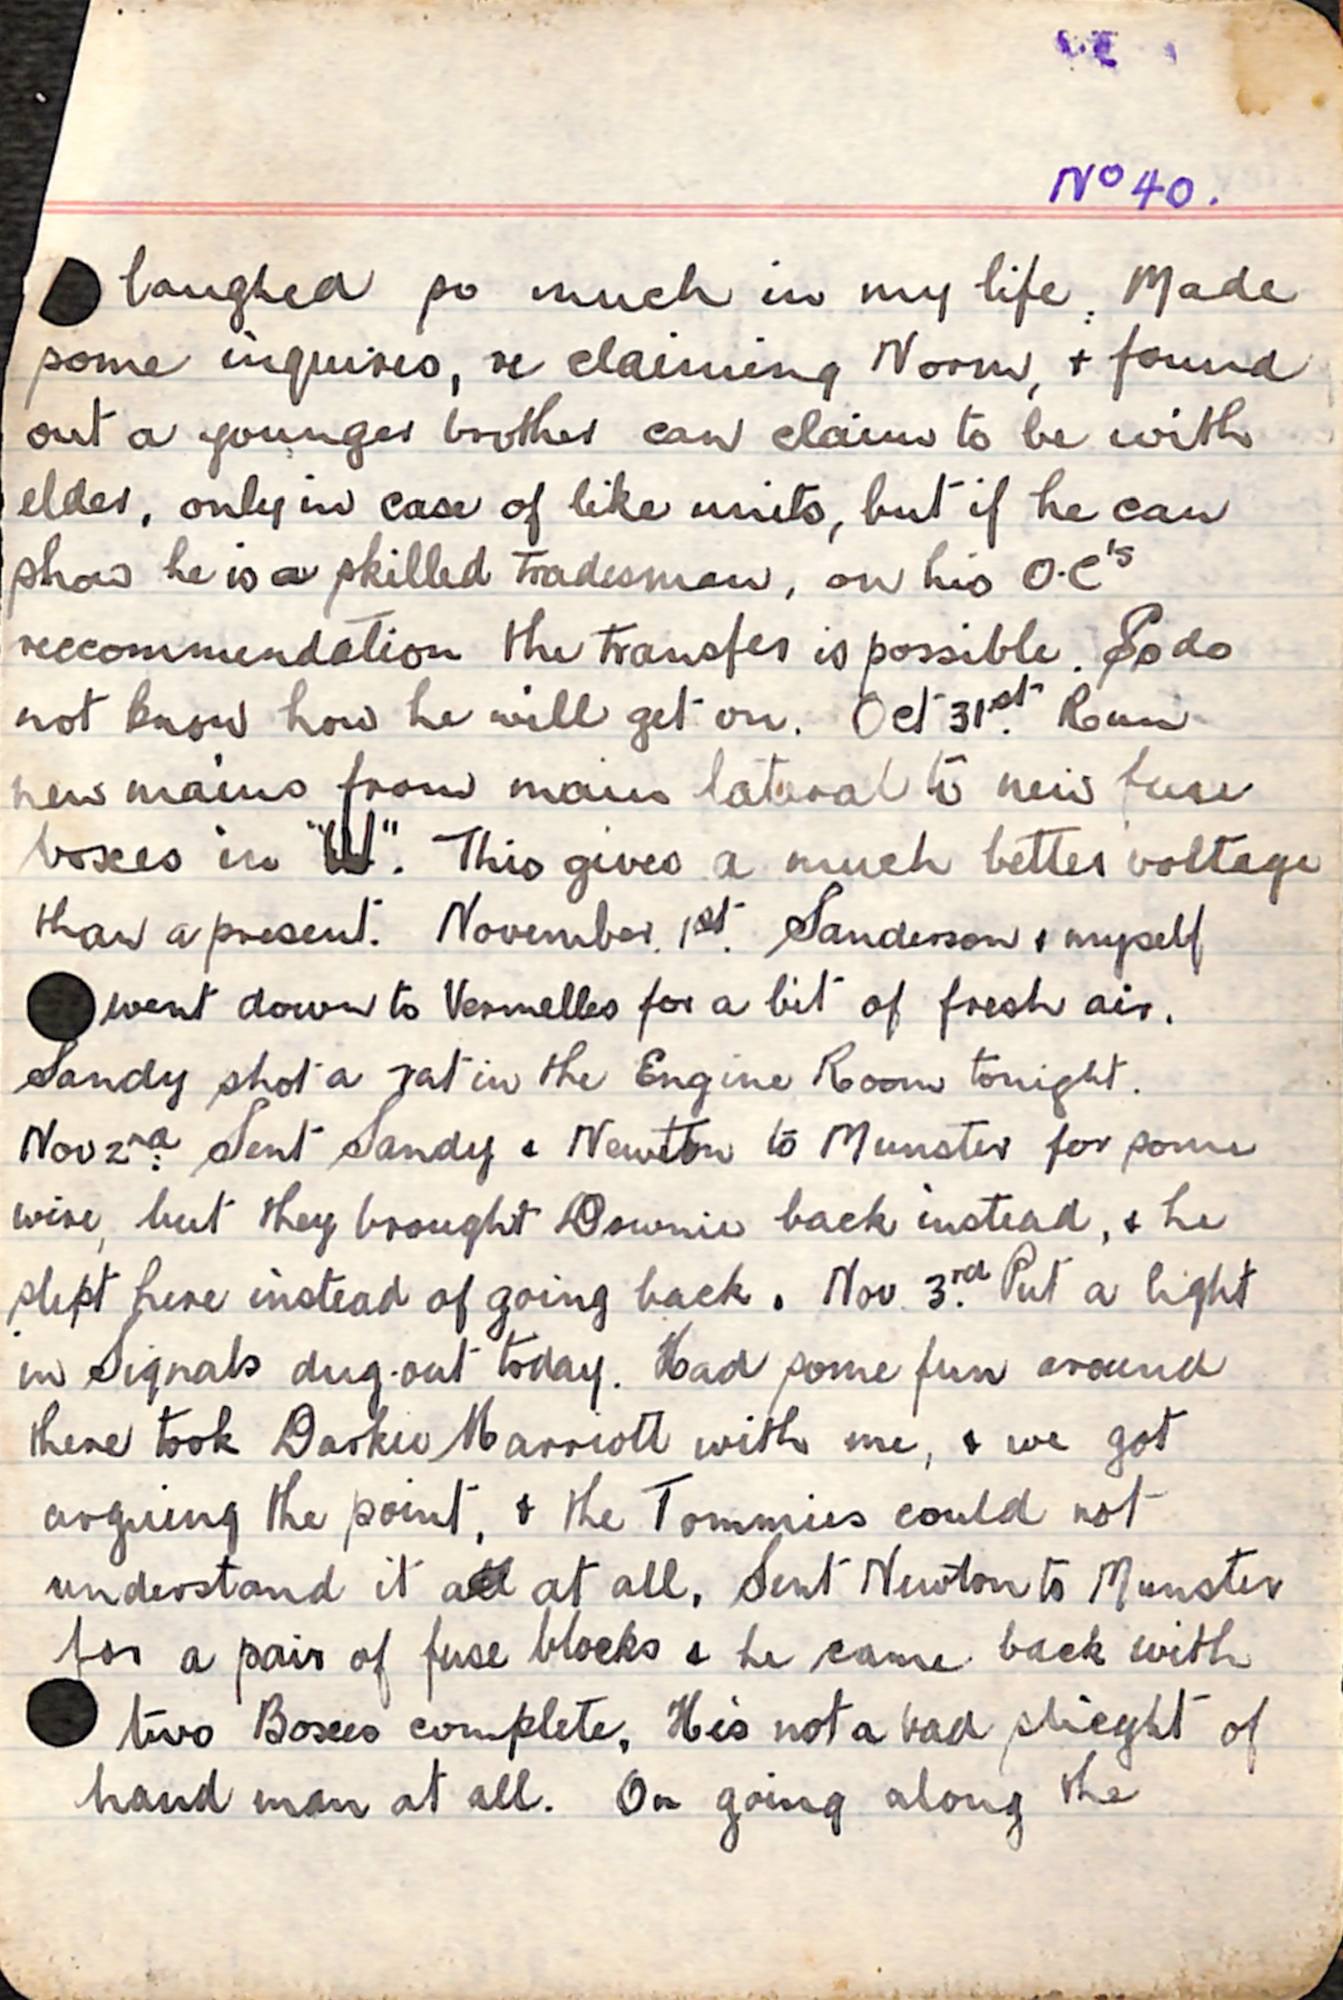 No 40.
laughed so much in my life. Made
some inquires, re claiming Norm, + found
out a younger brother can claim to be with
elder, only in case of like units, but if he can
show he is a skilled tradesman, on his O.C's
reccommendation the transfer is possible. So do
not know how he will get on. Oct 31st. Run
new mains from main lateral to new fuse
boxes in "W". This gives a much better voltage
than a present. November. 1st. Sanderson & myself
went down to Vermelles for a bit of fresh air.
Sandy shot a rat in the Engine Room tonight.
Nov 2nd. Sent Sandy & Newton to Munster for some
wire, but they brought Downie back instead, & he
slept here instead of going back. Nov 3rd. Put a light
in Signals dug-out today. Had some fun around
there took Darkie Marriott with me, & we got
arguing the point, & the Tommies could not
understand it all at all. Sent Newton to Munster
for a pair of fuse blocks & he came back with
two Boxes complete. His not a bad slieght of
hand man at all. On going along the